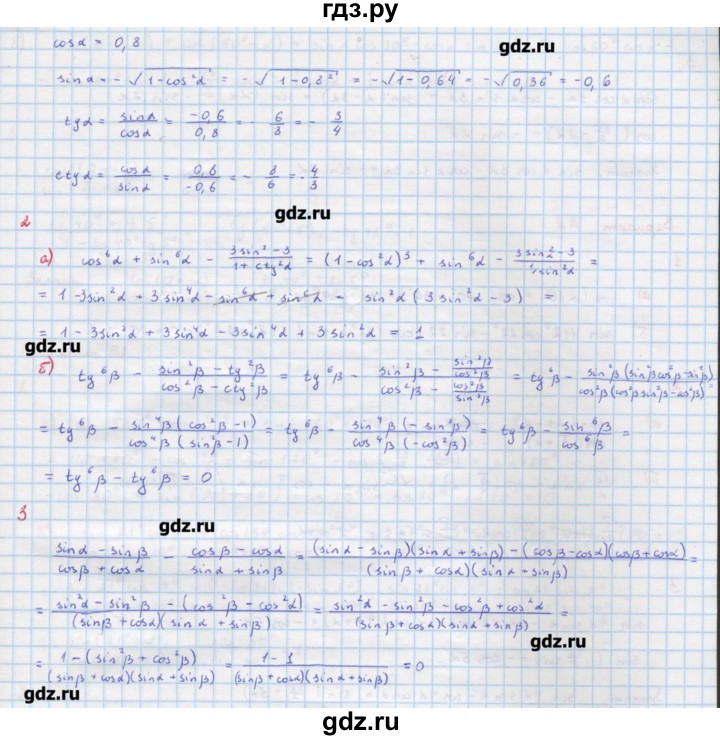 гдз.ру
cos α = 0,8
gdz.ru
sin α = - √(1-cos²α) = - √(1-0,8²) = -√(1-0,64) = -√0,36 = -0,6
tg α = sin α / cos α = -0,6 / 0,8 = - 6/8 = - 3/4
ctg α = cos α / sin α = 0,8 / -0,6 = - 8/6 = - 4/3
gdz.ru
2
а) cos⁶α + sin⁶α - (3sin² - 3)/(1 + ctg²α) = (1 - cos²α)³ + sin⁶α - (3sin²α - 3)/(1/sin²α) =
= 1 - 3sin²α + 3sin⁴α - sin⁶α + sin⁶α - sin²α (3sin²α - 3) =
= 1 - 3sin²α + 3sin⁴α - 3sin⁴α + 3sin²α = 1
gdz.ru
gdz.ru
б) tg⁶β - (sin²β - tg²β)/(cos²β - ctg²β) = tg⁶β - (sin²β - sin²β/cos²β)/(cos²β - cos²β/sin²β) = tg⁶β - sin²β(sin²βcos²β - sin²β)/cos²β(cos²βsin²β - cos²β) =
= tg⁶β - sin⁴β(cos²β - 1)/cos⁴β(sin²β - 1) = tg⁶β - sin⁴β(-sin²β)/cos⁴β(-cos²β) = tg⁶β - sin⁶β/cos⁶β =
= tg⁶β - tg⁶β = 0
3
gdz.ru
(sin α - sin β)/(cos β + cos α) - (cos β - cos α)/(sin α + sin β) = ((sin α - sin β)(sin α + sin β) - (cos β - cos α)(cos β + cos α))/((sin β + cos α)(sin α + sin β)) =
= (sin²α - sin²β - (cos²β - cos²α))/((sin β + cos α)(sin α + sin β)) = (sin²α - sin²β - cos²β + cos²α)/((sin β + cos α)(sin α + sin β)) =
gdz.ru
= (1 - (sin²β + cos²β))/((sin β + cos α)(sin α + sin β)) = (1 - 1)/((sin β + cos α)(sin α + sin β)) = 0
gdz.ru
gdz.ru